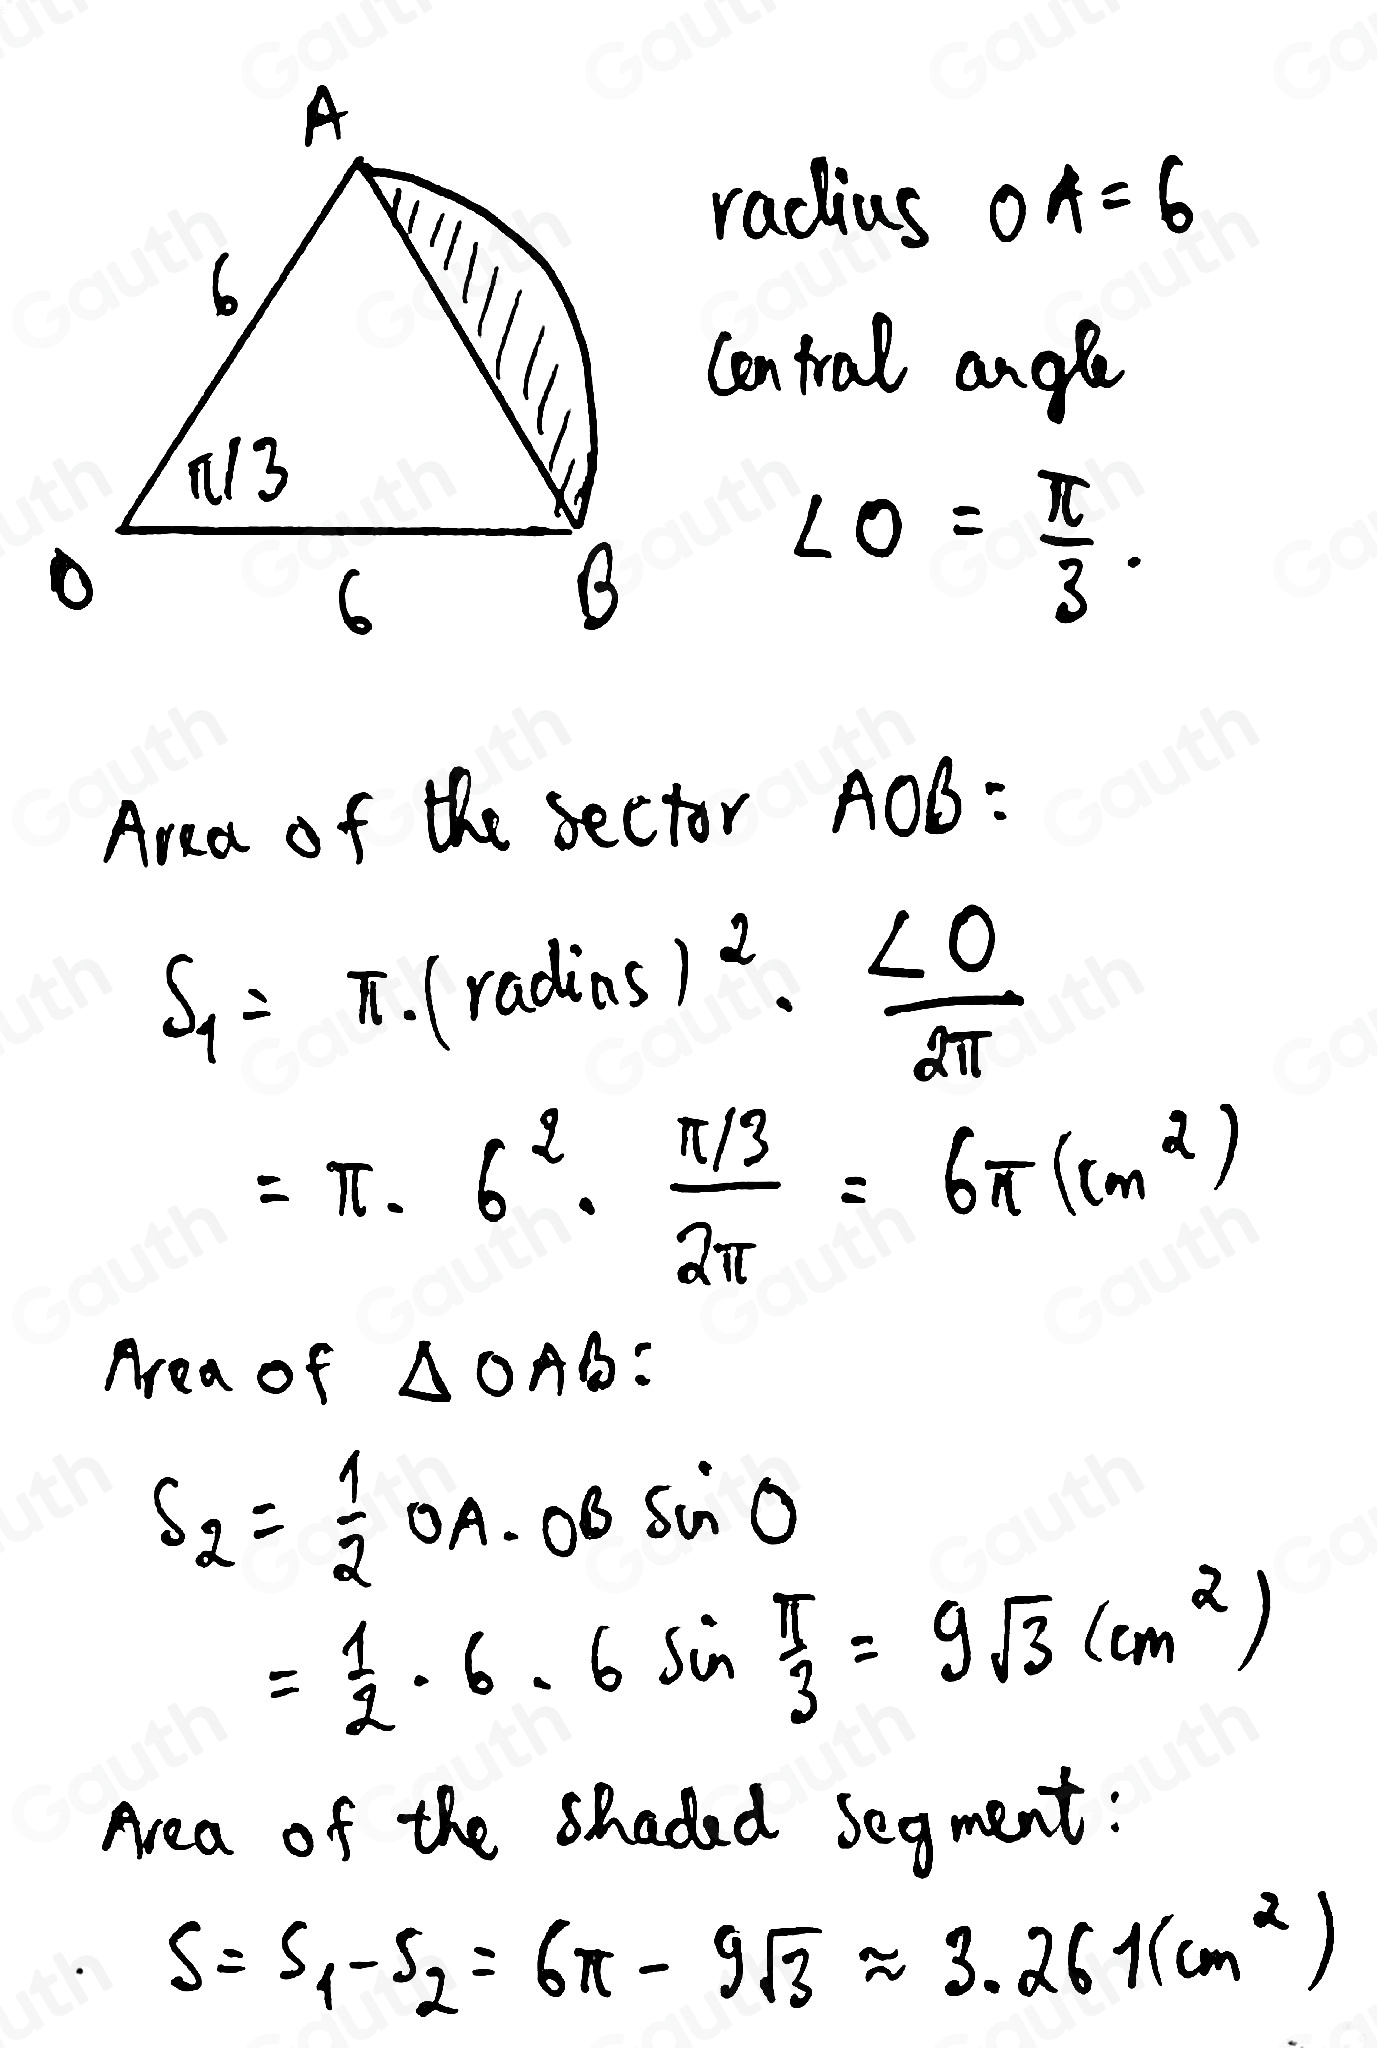 A
6
π/3
O
6
B
radius OA = 6
central angle
∠O = π/3.
Area of the sector AOB:
S₁ = π.(radius)² . ∠O/2π
= π. 6² . (π/3)/2π = 6π (cm²)
Area of Δ OAB:
S₂ = 1/2 OA . OB sin O
= 1/2 . 6 . 6 sin π/3 = 9√3 (cm²)
Area of the shaded segment:
S = S₁ - S₂ = 6π - 9√3 ≈ 3.261 (cm²)
Gauth